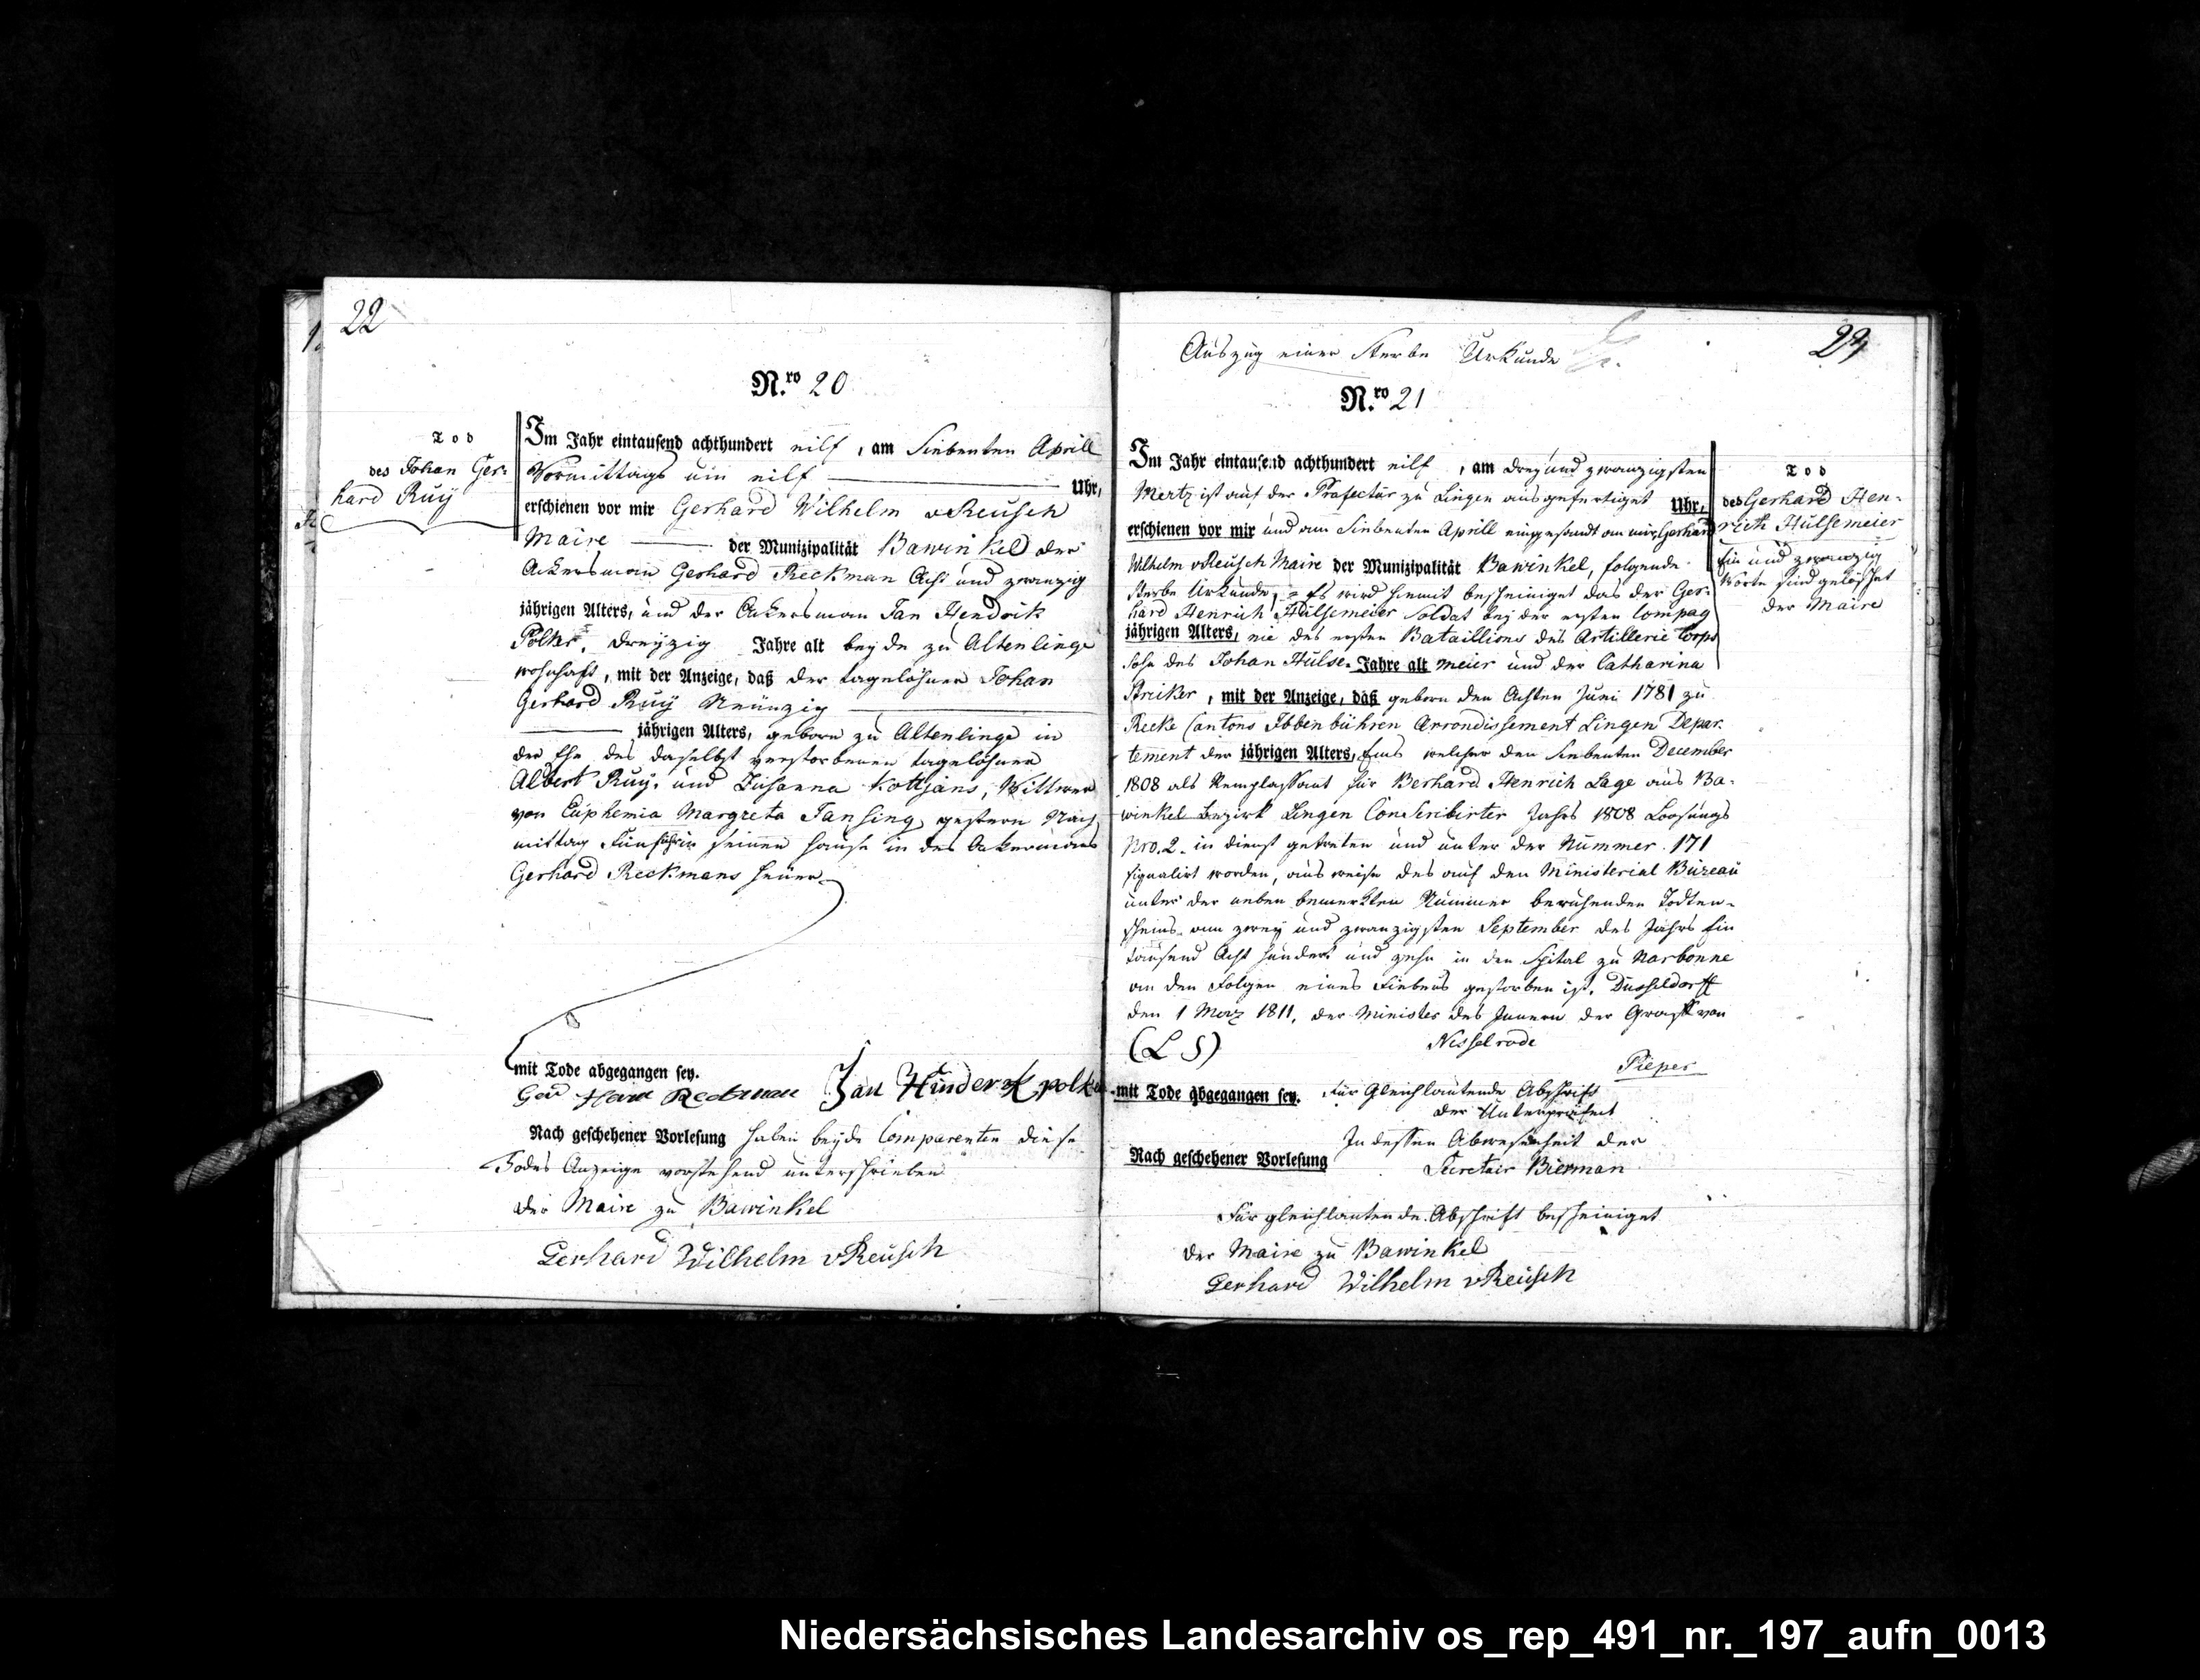 22
N.ro 20
Tod
des Johan Ger-
hard Ruÿ
Im Jahr eintausend achthundert eilf, am Siebenten Aprill
Vormittags um eilf Uhr,
erschienen vor mir Gerhard Wilhelm vReusch
Maire der Munizipalität Bawinkel der
Ackersman Gerhard Reckman Acht und zwanzig
jährigen Alters, und der Ackersman Jan Hendrik
Polker, dreyzig Jahre alt beyde zu Altenlinge
wohnhaft, mit der Anzeige, daß der tagelöhner Johan
Gerhard Ruÿ Neunzig
jährigen Alters, geboren zu Altenlinge in
der Ehe des daselbst verstorbenen tagelöhner
Albert Ruÿ, und Susanna Kottjans, Wittwer
von Euphemia Margreta Jansing, gestern Nach
mittag fünf Uhr in seinen Hause in des Ackermans
Gerhard Reckmans Heuer
mit Tode abgegangen sey.
Ger Hard Reckman Jan Hinderk polker
Nach geschehener Vorlesung haben beyde Comparenten diese
Todes Anzeige vorstehend unterschrieben
der Maire zu Bawinkel
Gerhard Wilhelm vReusch
Auszug einer Sterbe Urkunde
23
N.ro 21
Im Jahr eintausend achthundert eilf, am drey und zwanzigsten
Mertz ist auf der Präfectur zu Lingen ausgefertiget Uhr,
erschienen vor mir und am Siebenten Aprill eingesandt an mir, Gerhard
Wilhelm vReusch Maire der Munizipalität Bawinkel, folgende
Sterbe Urkunde, = Es wird hiemit bescheiniget das der Ger-
hard Henrich Hülsemeier Soldat bey der ersten Compag
jährigen Alters, nie des ersten Bataillions des Artillerie Corps
Sohn des Johan Hülse- Jahre alt meier und der Catharina
Striker, mit der Anzeige, daß geboren den Achten Juni 1781 zu
Recke Cantons Ibbenbühren Arrondissement Lingen Depar-
tement der jährigen Alters, Ems welcher den Siebenten December
1808 als Remplassant für Berhard Henrich Lage aus Ba-
winkel Bezirk Lingen Conscribirter Jahrs 1808 Loosungs
Nro. 2. in dienst getreten und unter der Nummer 171
signalirt worden, ausweise des auf den Ministerial Büreau
unter der neben bemerkten Nummer beruhenden Todten-
scheins am zwey und zwanzigsten September des Jahrs Ein
tausend Acht hundert und zehn in den Spital zu Narbonne
an den Folgen eines Fiebers gestorben ist. Dusseldorff
den 1 Merz 1811, der Minister des Innern der Graff von
(L S) Nesselrode
Pieper
mit Tode abgegangen sey. Für Gleichlautende Abschrift
der Unterpräfect
In dessen Abwesenheit der
Nach geschehener Vorlesung Secretair Bierman
Für gleichlautende Abschrift bescheiniget
der Maire zu Bawinkel
Gerhard Wilhelm vReusch
Tod
des Gerhard Hen-
rich Hülsemeier
Ein und zwanzig
Worte sind gelöschet
der Maire
Niedersächsisches Landesarchiv os_rep_491_nr._197_aufn_0013